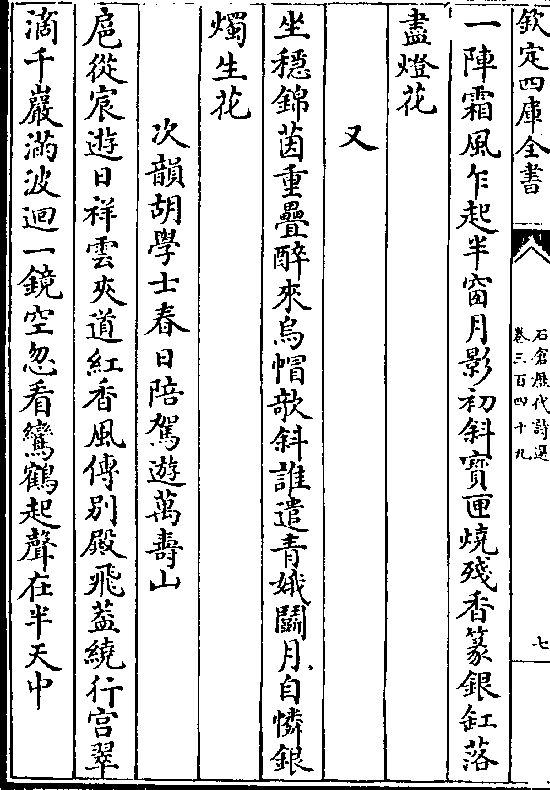 欽定四庫全書
石倉歷代詩選
卷三百四十九
七
一陣霜風乍起半窗月影初斜寳匣燒殘香篆銀缸落
盡燈花
又
坐穏錦茵重疊醉來烏帽欹斜誰遣青娥鬭月自憐銀
燭生花
次韻胡學士春日陪駕遊萬壽山
扈從宸遊日祥雲夾道紅香風傳別殿飛葢繞行宫翠
滴千巖滿波迴一鏡空忽看鸞鶴起聲在半天中